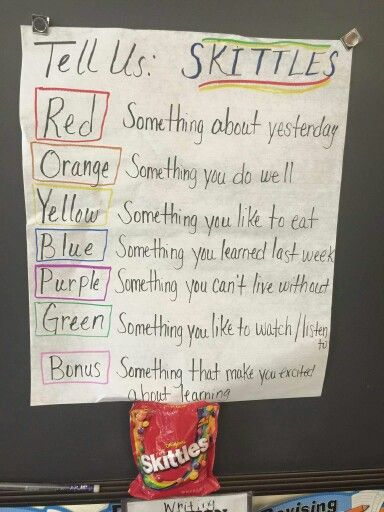 Tell Us: SKITTLES
Red Something about yesterday
Orange Something you do well
Yellow Something you like to eat
Blue Something you learned last week
Purple Something you can't live without
Green Something you like to watch/listen
to
Bonus Something that make you excited
about learning
Skittles
Writing
Revising